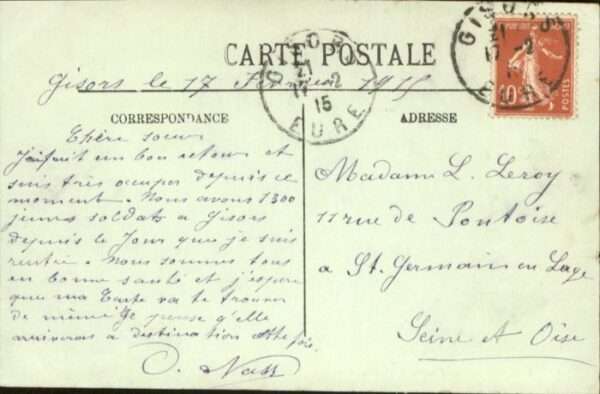 CARTE POSTALE
Gisors le 17 Février 1915
GISORS
21
17 -2
15
EURE
GISORS
21
17 -2
EURE
10
POSTES
CORRESPONDANCE
ADRESSE
Chère soeur
J'ai fait un bon retour et
suis très occuper depuis ce
moment. Nous avons 1300
jeunes soldats a Gisors
depuis le Jour que je suis
rentré. Nous sommes tous
en bonne santé et j'espère
que ma Carte va te trouver
de même Je pense q'elle
arrivera a destination cette fois.
Madame L. Leroy
11 rue de Pontoise
a St. Germain en Laye
Seine et Oise